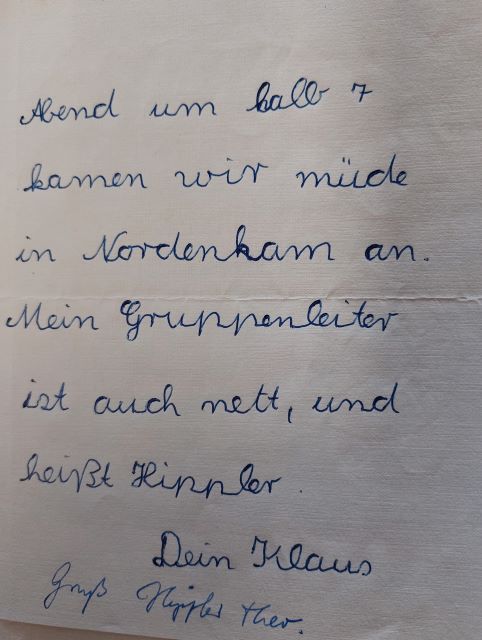 Abend um halb 7
kamen wir müde
in Nordenkam an.
Mein Gruppenleiter
ist auch nett, und
heißt Hippler.
Dein Klaus
Gruß Hippler Theo.